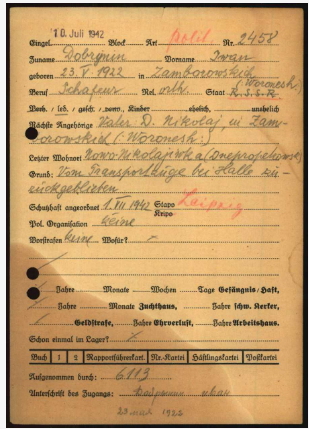 10. Juli 1942
Eingel. Block Art polit. Nr. 2458
Zuname Dobrynin Vorname Iwan
geboren 23. V. 1922 in Zamborowskich
(Woronesh:)
Beruf Schafeur Rel. orth. Staat R.S.S.R.
Verh., led., gesch., verw., Kinder ehelich, unehelich
Nächste Angehörige Vater D. Nikolaj, in Zam-
borowskich (: Woronesh:)
Letzter Wohnort Nowo-Nikolajiwka (Dnepropetrowsk)
Grund: Vom Transportzuge bei Halle zu-
rückgeblieben
Schutzhaft angeordnet 1. VII 1942 Stapo Leipzig
Kripo
Pol. Organisation keine
Vorstrafen keine Wofür?
Jahre Monate Wochen Tage Gefängnis/Haft,
Jahre Monate Zuchthaus, Jahre schw. Kerker,
Geldstrafe, Jahre Ehrverlust, Jahre Arbeitshaus.
Schon einmal im Lager?
Buch 1 2 Rapportführerkart. Nr.-Kartei Häftlingskartei Postkartei
Aufgenommen durch: 6113
Unterschrift des Zugangs: Добрынин иван
23 1922